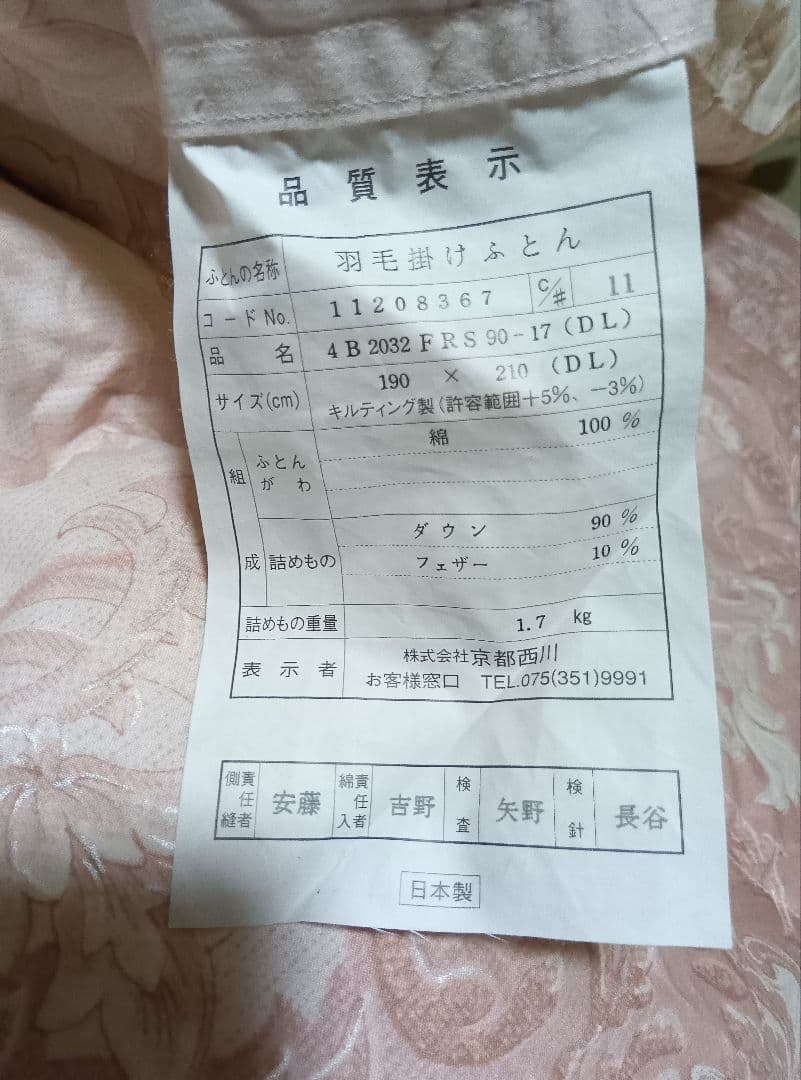 品質表示
ふとんの名称 羽毛掛けふとん
コードNo. 11208367 C/# 11
品名 4B2032FRS90-17(DL)
サイズ(cm) 190 × 210 (DL)
キルティング製(許容範囲+5%、-3%)
組成 ふとんがわ 綿 100%
詰めもの ダウン 90%
フェザー 10%
詰めもの重量 1.7 kg
表示者 株式会社京都西川
お客様窓口 TEL.075(351)9991
側責任縫者 安藤 綿責任入者 吉野 検査 矢野 検針 長谷
日本製